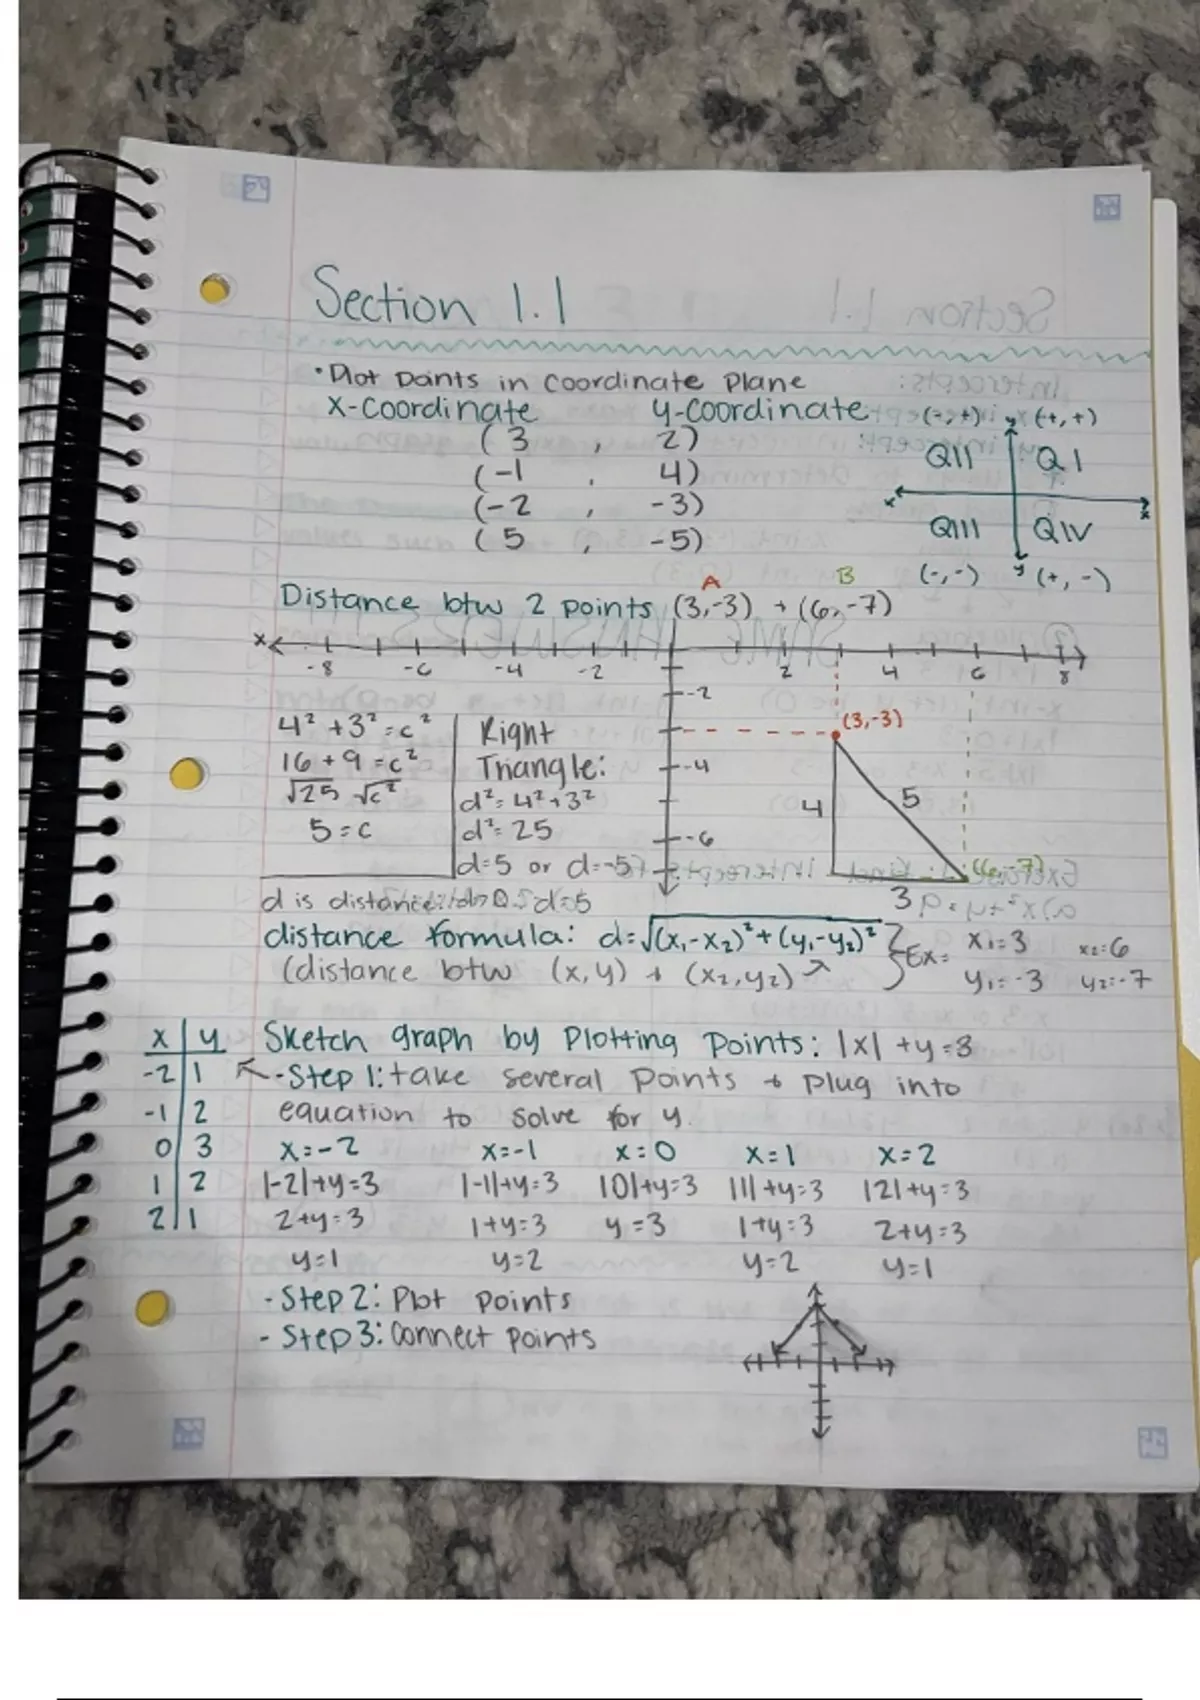 Section 1.1
• Plot Points in Coordinate Plane
X-Coordinate y-Coordinate
(3, 2)
(-1, 4)
(-2, -3)
(5, -5)
(-,+) y (+,+)
QII QI
x x
QIII QIV
(-,-) y (+,-)
A B
Distance btw 2 points (3,-3) + (6,-7)
x -8 -6 -4 -2 2 4 6 8
-2
-4
-6
(3,-3)
4 5
(6,-7)
3
4² + 3² = c²
16 + 9 = c²
√25 √c²
5 = c
Right
Triangle:
d² = 4² + 3²
d² = 25
d=5 or d=-5
d is distance d=5
distance formula: d=√(x₁-x₂)²+(y₁-y₂)² } Ex= x₁=3 x₂=6
(distance btw (x,y) + (x₂,y₂) ↗ y₁=-3 y₂=-7
x | y
-2 | 1
-1 | 2
0 | 3
1 | 2
2 | 1
Sketch graph by Plotting Points: |x| + y = 3
- Step 1: take several points + plug into
equation to solve for y.
x=-2 x=-1 x=0 x=1 x=2
|-2|+y=3 |-1|+y=3 |0|+y=3 |1|+y=3 |2|+y=3
2+y=3 1+y=3 y=3 1+y=3 2+y=3
y=1 y=2 y=2 y=1
- Step 2: Plot points
- Step 3: Connect points